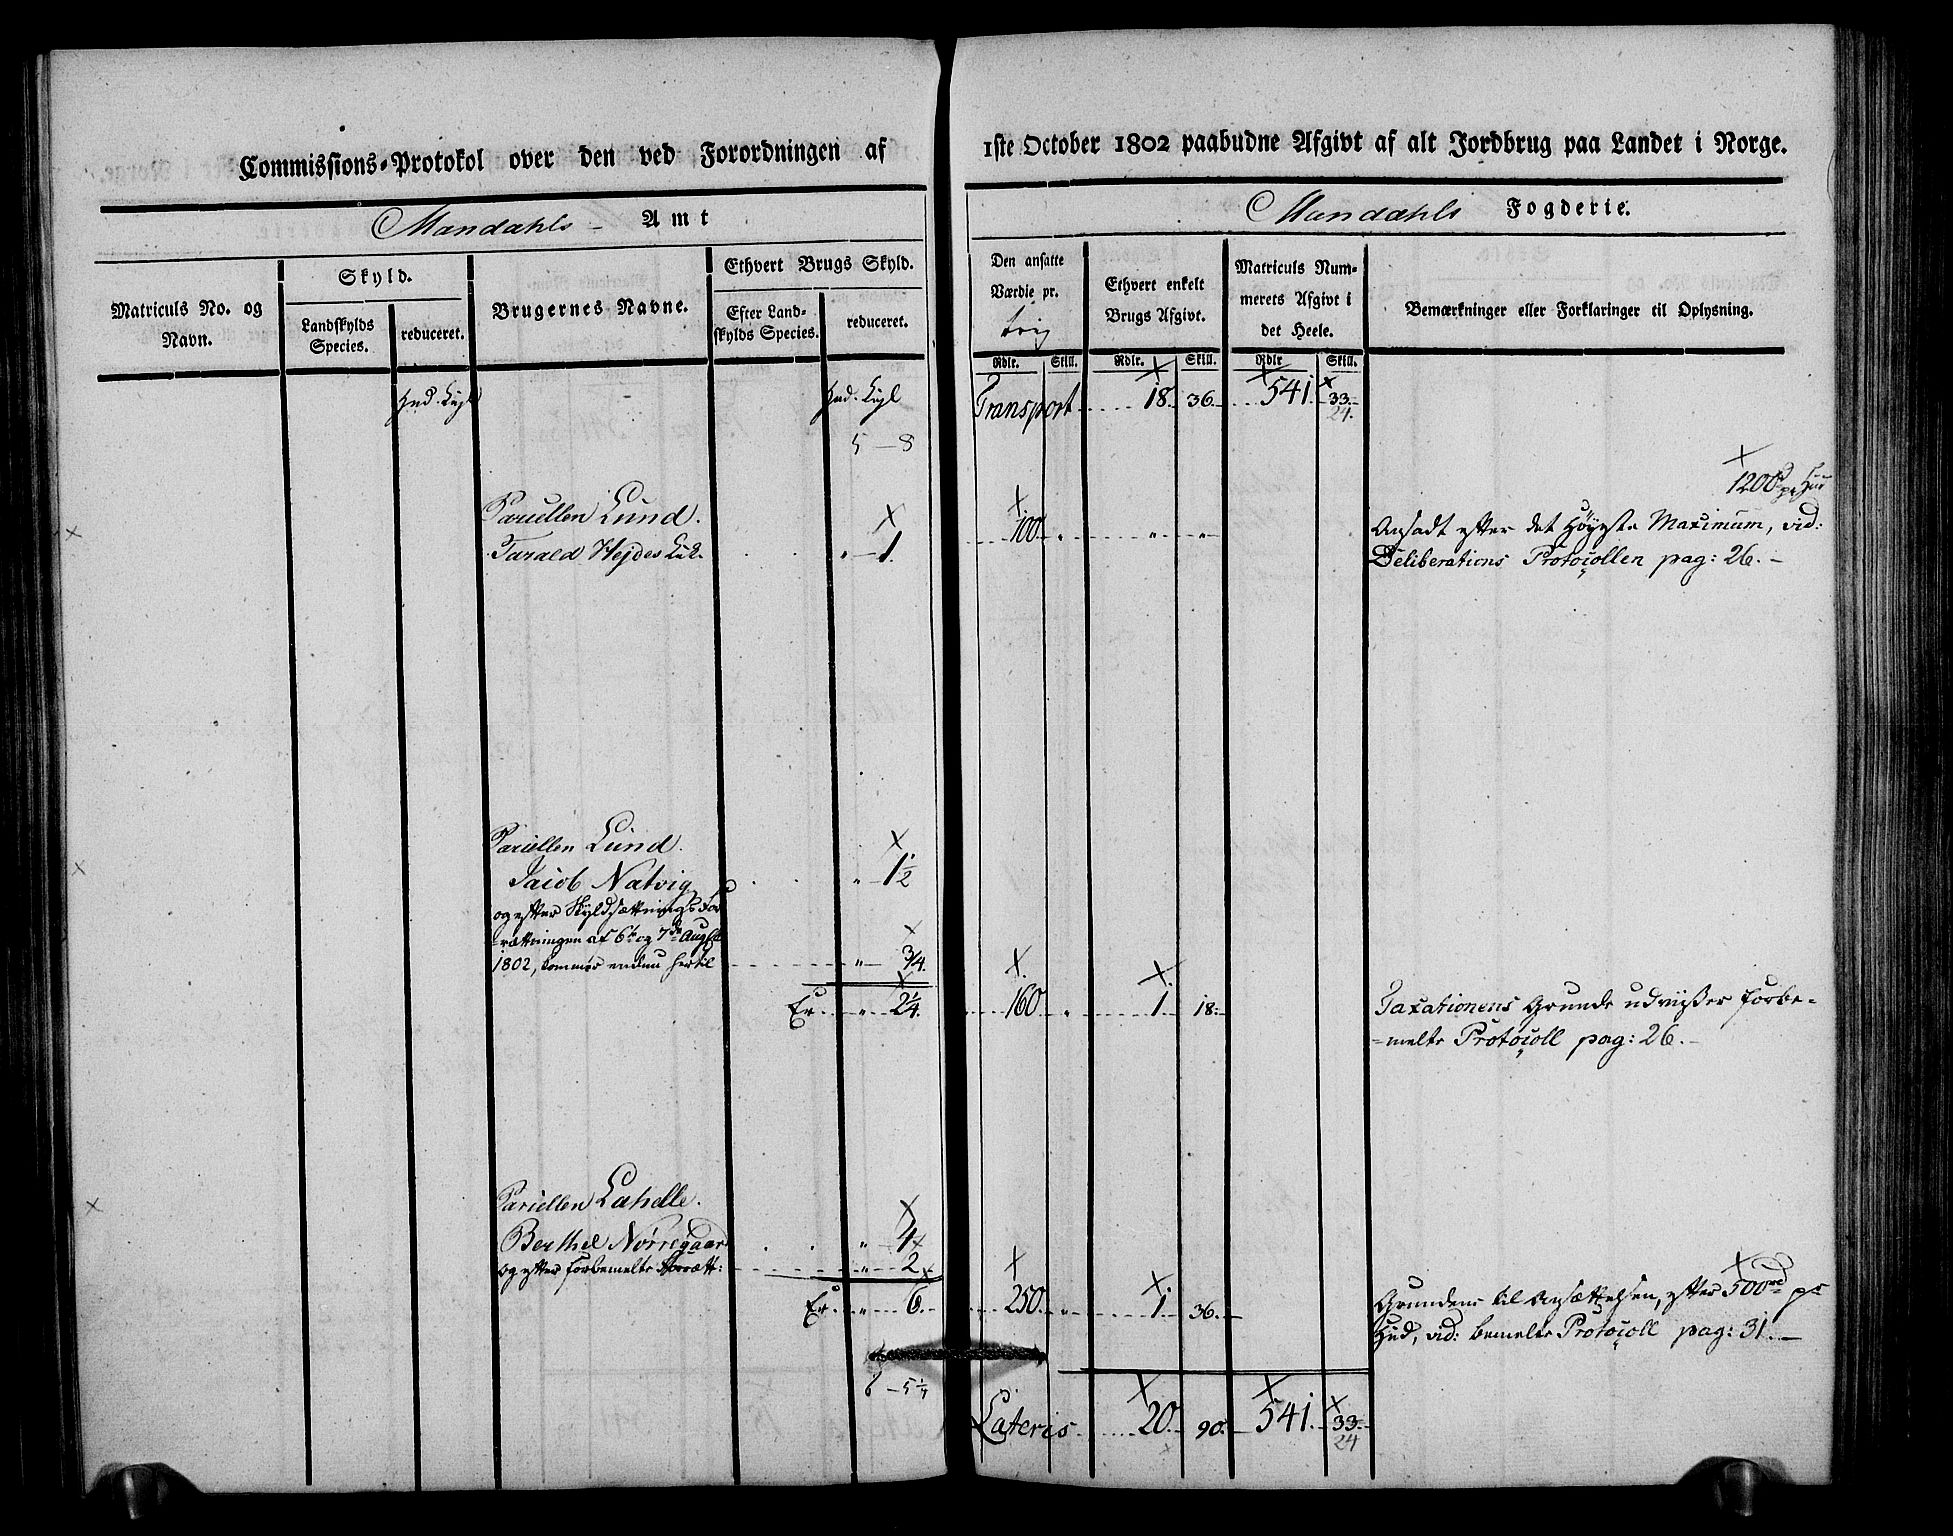 Commissions-Protokol over den ved Forordningen af
1ste October 1802 paabudne Afgivt af alt Jordbrug paa Landet i Norge.
Mandahls Amt
Mandahls Fogderie.
Matriculs No. og Navn.
Skyld.
Landskylds Species.
reduceret.
Brugernes Navne.
Ethvert Brugs Skyld.
Efter Land-
skylds Species.
reduceret.
Den ansatte
Værdie pr.
Ethvert enkelt
Brugs Afgivt.
Matriculs Num-
merets Afgivt i
det Heele.
Bemærkninger eller Forklaringer til Oplysning.
Rdlr. Skill. Rdlr. Skill. Rdlr Skill.
Transport 18. 36. 541. 33.
24.
5 - 8
1200 pr Hud
Parcellen Lund.
Tarald Hejdes Enk. " - 1. 100. " " "
Ansadt efter det Høyeste Maximum, vid:
Deliberations Protocollen pag: 26. -
Parcellen Lund.
Jacob Natvig " - 1 1/2
og efter Skyldsættnings For
-rættningen af 6te og 7de Aug
1802, kommer endnu hertil " - 3/4.
Er " 2 1/4. 160. " 1. 18.
Taxationens Grunde udviiser forbe-
-melte Protocoll pag: 26. -
Parcellen Lahelle.
Berthel Nørregaard " 4
og efter forbemelte Forrætt: " 2
Er " 6. 250. " 1. 36.
Grundene til Ansættelsen, efter 500rd pr
Hud, vid: bemelte Protocoll pag: 31. -
6 - 5 1/4
Lateris 20. 90. 541. 33.
24